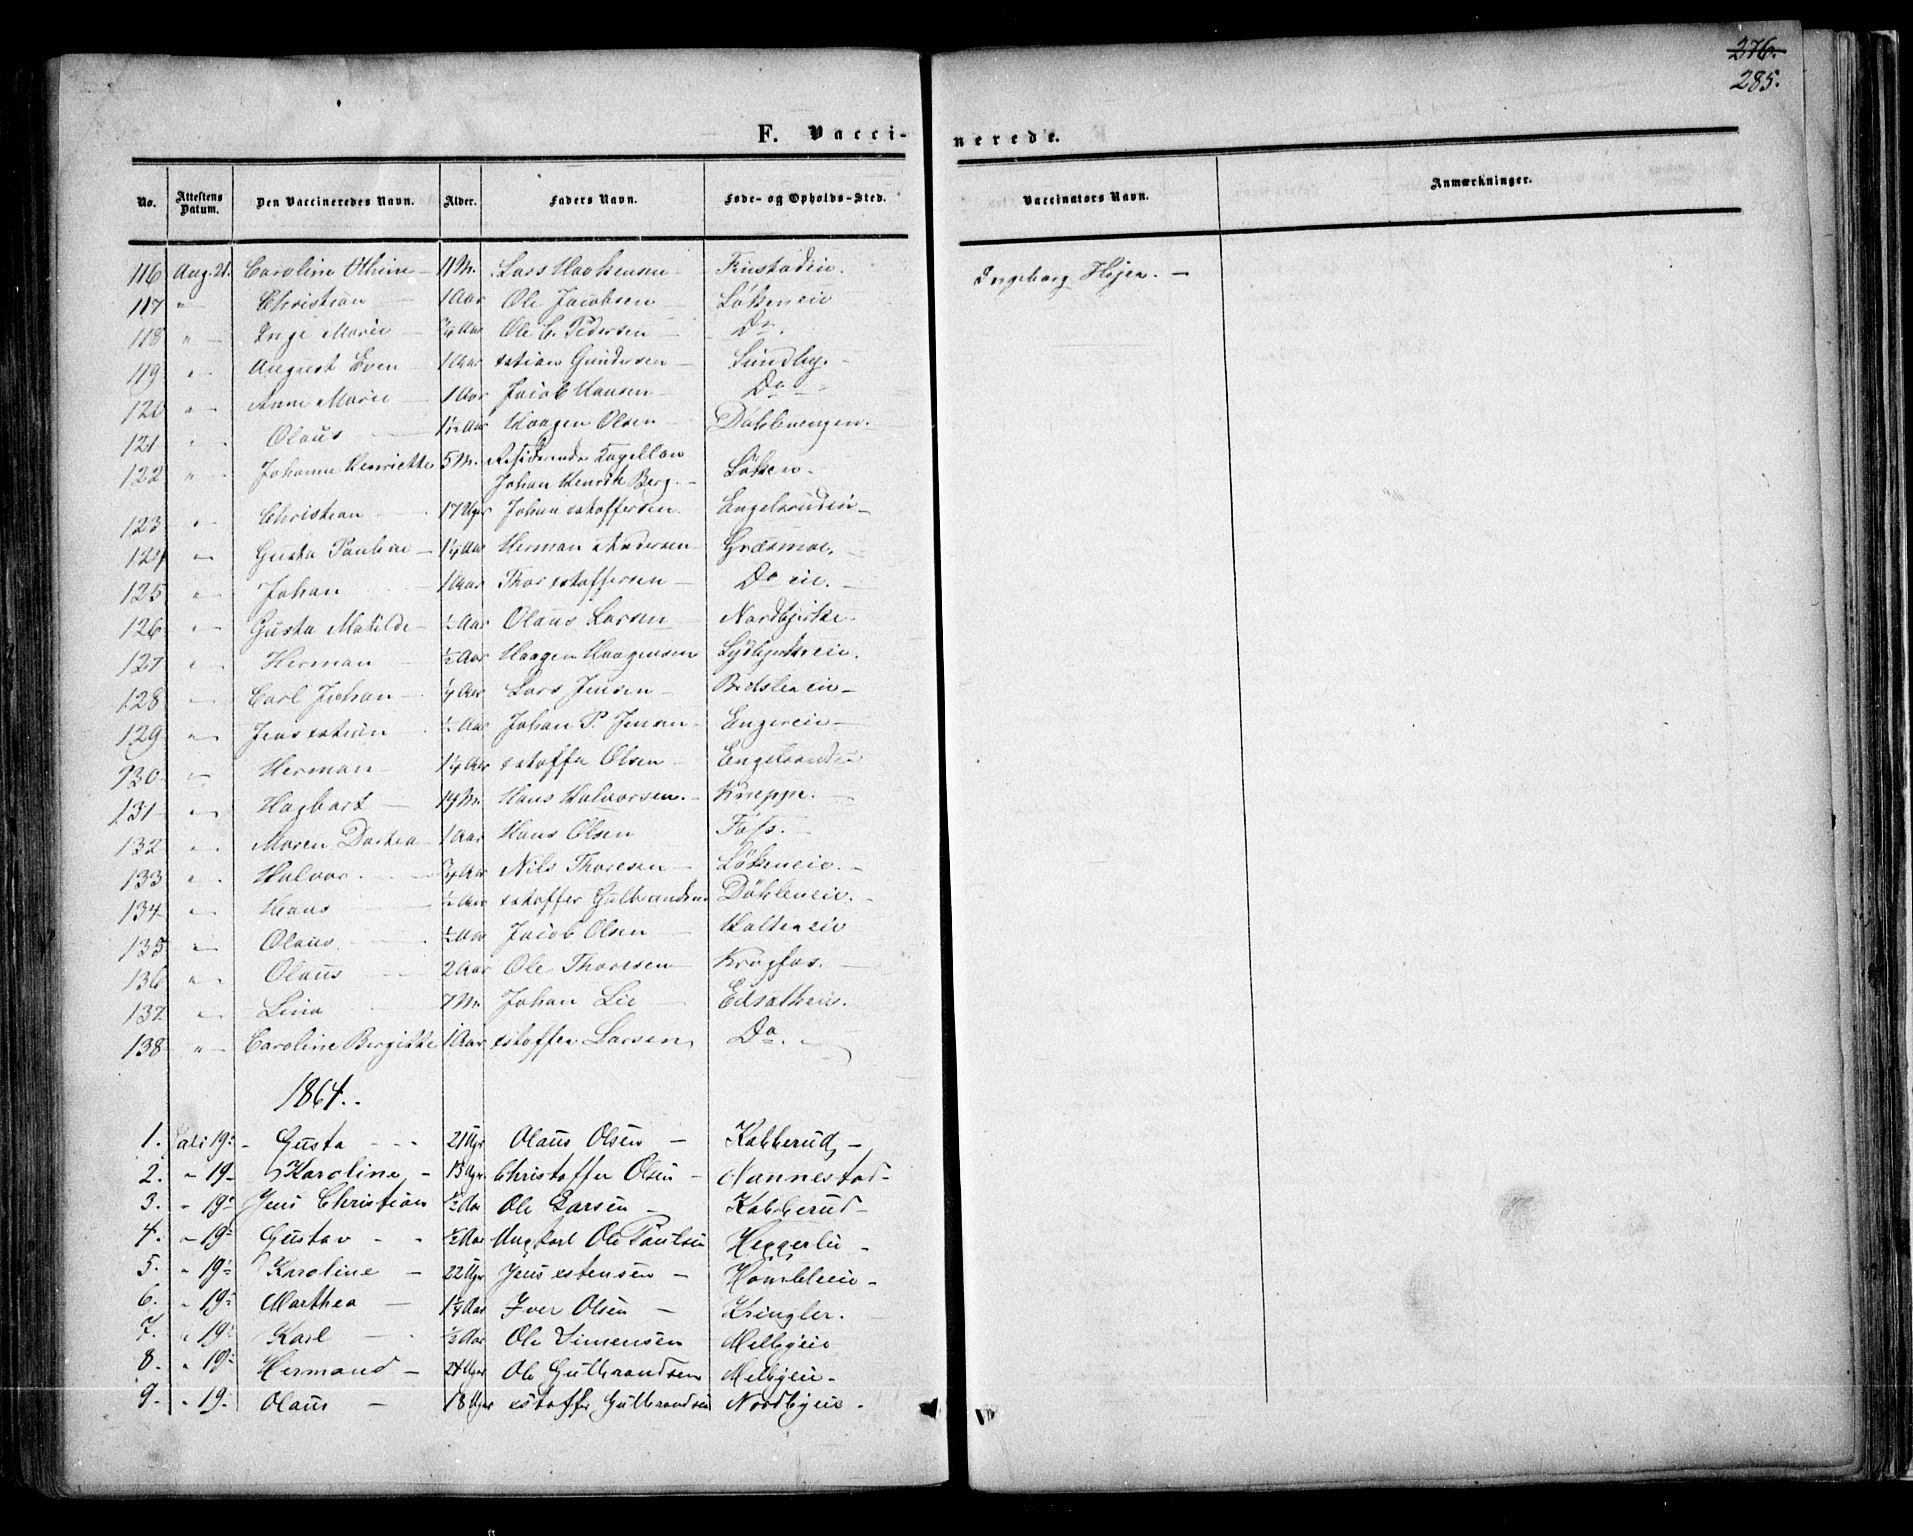 276.
285.
F. Vacci-
nerede.
No. Attestens Datum. Den Vaccineredes Navn. Alder. Faders Navn. Føde- og Opholds-Sted. Vaccinators Navn. Anmærkninger.
116 Aug. 21. Caroline Othine 11 M. Lars Haakensen Finstadeie. Ingeborg Hejer.
117 " Christian 1 Aar Ole Jacobsen Løkeneie
118 " Inge Marie ¾ Aar Ole C. Pedersen Do.
119 " August Even 1 Aar xstian Gundersen Sundby.
120 " Anne Marie 1 Aar Jacob Hansen Do
121 " Olaus 1½ Aar Haagen Olsen
122 " Johanne Henriette 5 M. Residerende Capellan
Johan Henrik Berg. Løken.
123 " Christian 17 Uger Johan xstoffersen. Engelsrudeie
124 " Gusta Pauline 1¼ Aar Herman Andersen Græsmoe.
125 " Johan 1 Aar Thor xstoffersen Do eie.
126 " Gusta Matilde ½ Aar Olaus Larsen Nordbyirke
127 " Herman ½ Aar Haagen Haagensen
128 " Carl Johan ¼ Aar Lars Jensen
129 " Jens xstian ½ Aar Johan P. Jensen Engereie
130 " Herman 1¼ Aar xstoffer Olsen Engelsrudeie
131 " Hagbart 14 M. Hans Halvorsen. Kneppe.
132 " Maren Dortea 1 Aar Hans Olsen Fos.
133 " Halvor ¾ Aar Nils Thoresen Løkeneie.
134 " Hans ½ Aar xstoffer Gulbrandsen Døhleneie.
135 " Olaus. ½ Aar Jacob Olsen Holteneie
136 " Olaus 2 Aar Ole Thoresen Krogfos.
137 " Lina 7 M. Johan Lie
138 " Caroline Bergitte 1 Aar xstoffer Larsen Do.
1864.
1. Juli 19. Gusta 21 Ugr Olaus Olsen Kabberud
2. " 19 Karoline 13 Ugr. Christoffer Olsen Nannestad
3. " 19 Jens Christian ½ Aar Ole Larsen Kabberud
4. " 19 Gustav ½ Aar Ungkarl Ole Paulsen Heggerlie
5. " 19 Karoline 22 Ugr Jens xstensen Hombleeie
6. " 19 Marthea 1¼ Aar Iver Olsen Kringler.
7. " 19 Karl ½ Aar Ole Simensen Melbyeie
8. " 19 Hermand 24 Uger Ole Gulbrandsen Melbyeie
9. " 19. Olaus 18 Uger xstoffer Gulbrandsen Nordbyeie.